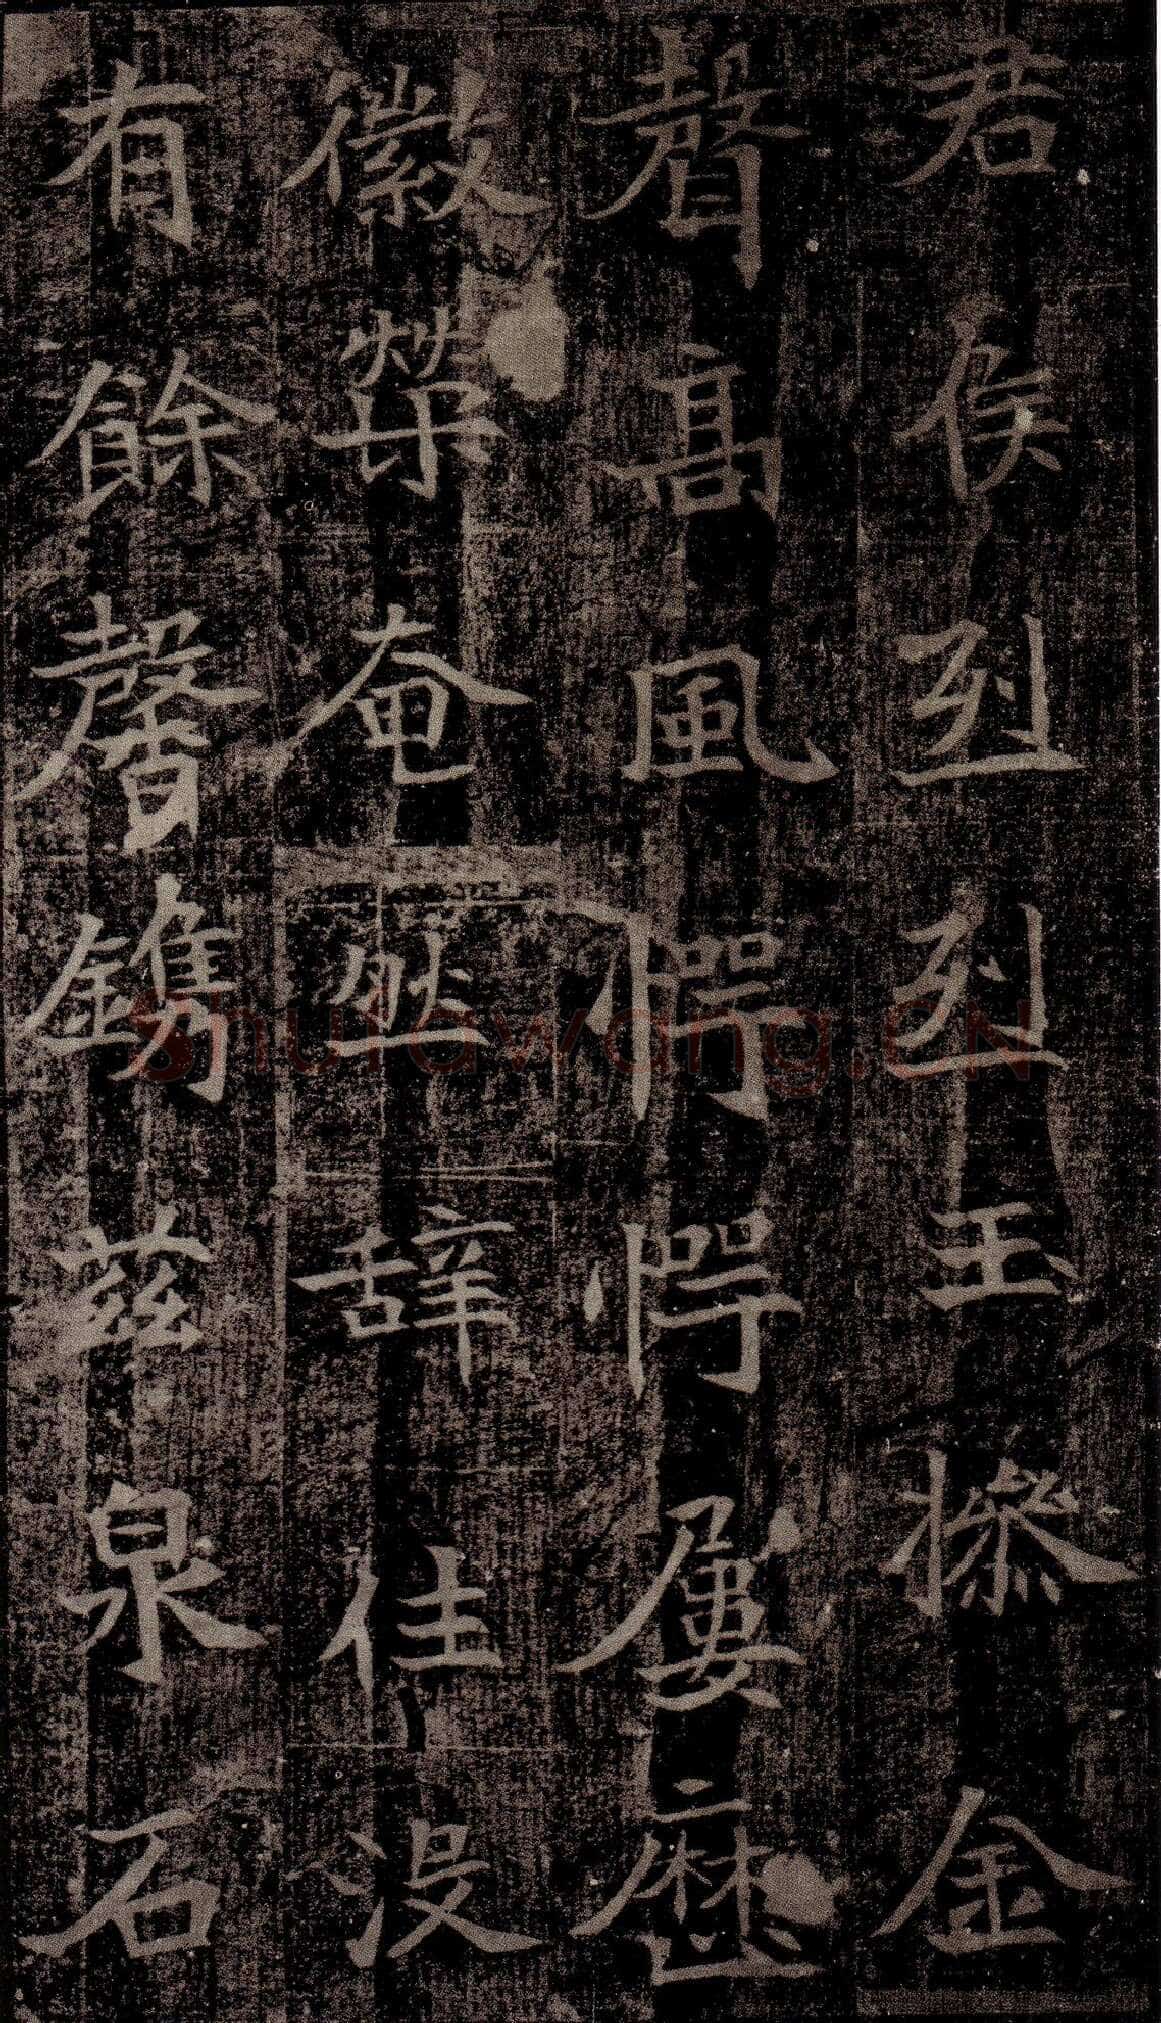 君侯烈烈玉操金
聲髙風愕愕屢歷
徽榮奄然辞住没
有餘馨鐫茲泉石
Shufawang.CN